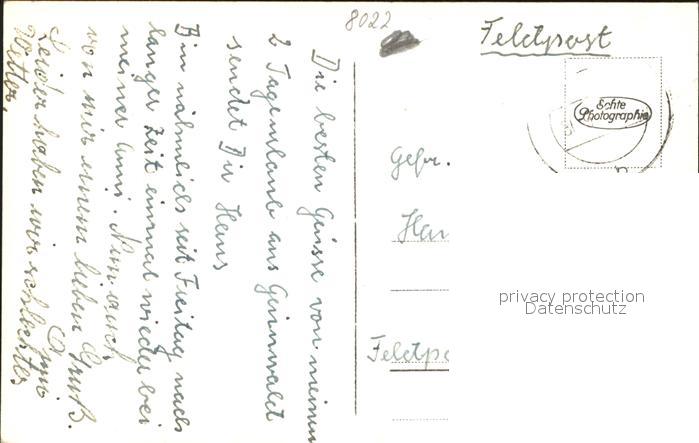 8022
Feldpost
Echte
Photographie
Gefr.
Feldpo
privacy protection
Datenschutz
Die besten Grüsse von meinem
2 Tagemlaub aus Grünwald
sendet Dir Hans
Bin nähmlich seit Freitag nach
langer Zeit einmal wieder bei
meiner Anni. Nun auch
von mir einen lieben Gruß.
Anni
Leider haben wir schlechtes
Wetter.